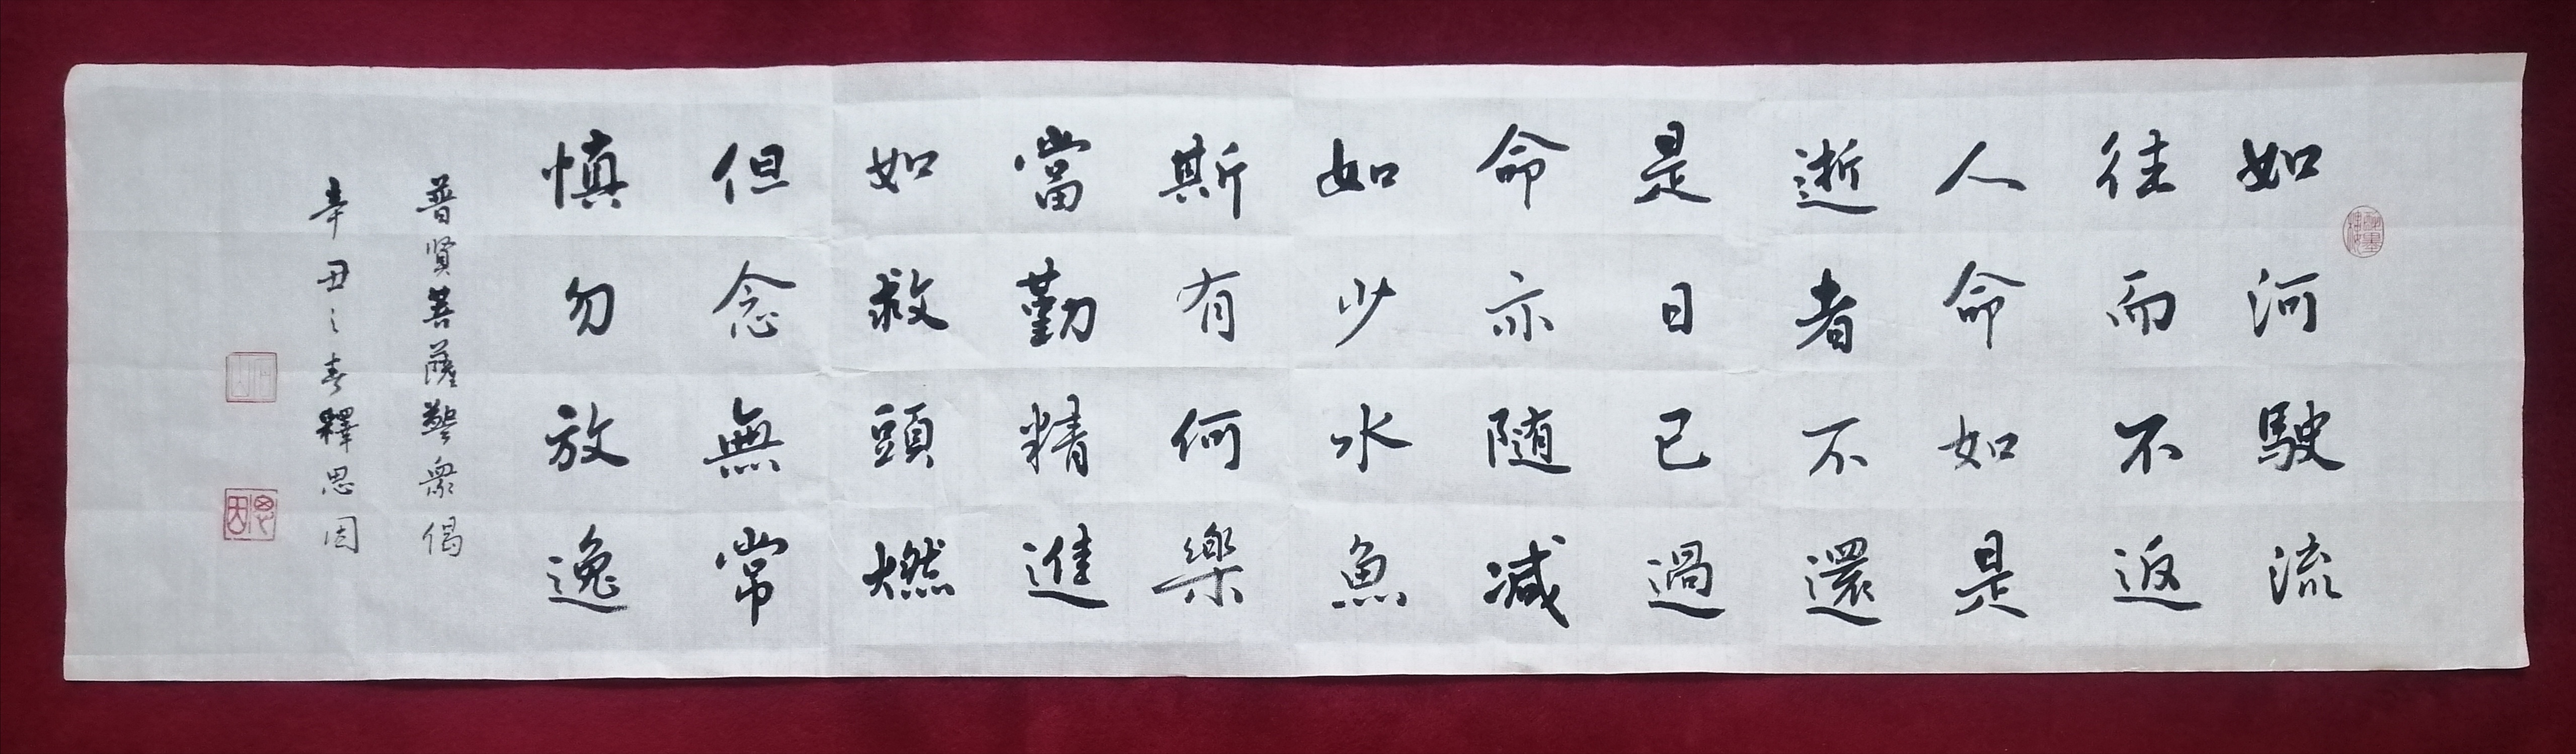 如河駛流
往而不返
人命如是
逝者不還
是日已過
命亦随减
如少水魚
斯有何樂
當勤精進
如救頭燃
但念無常
慎勿放逸
普贤菩薩警衆偈
辛丑之春釋思因
思因